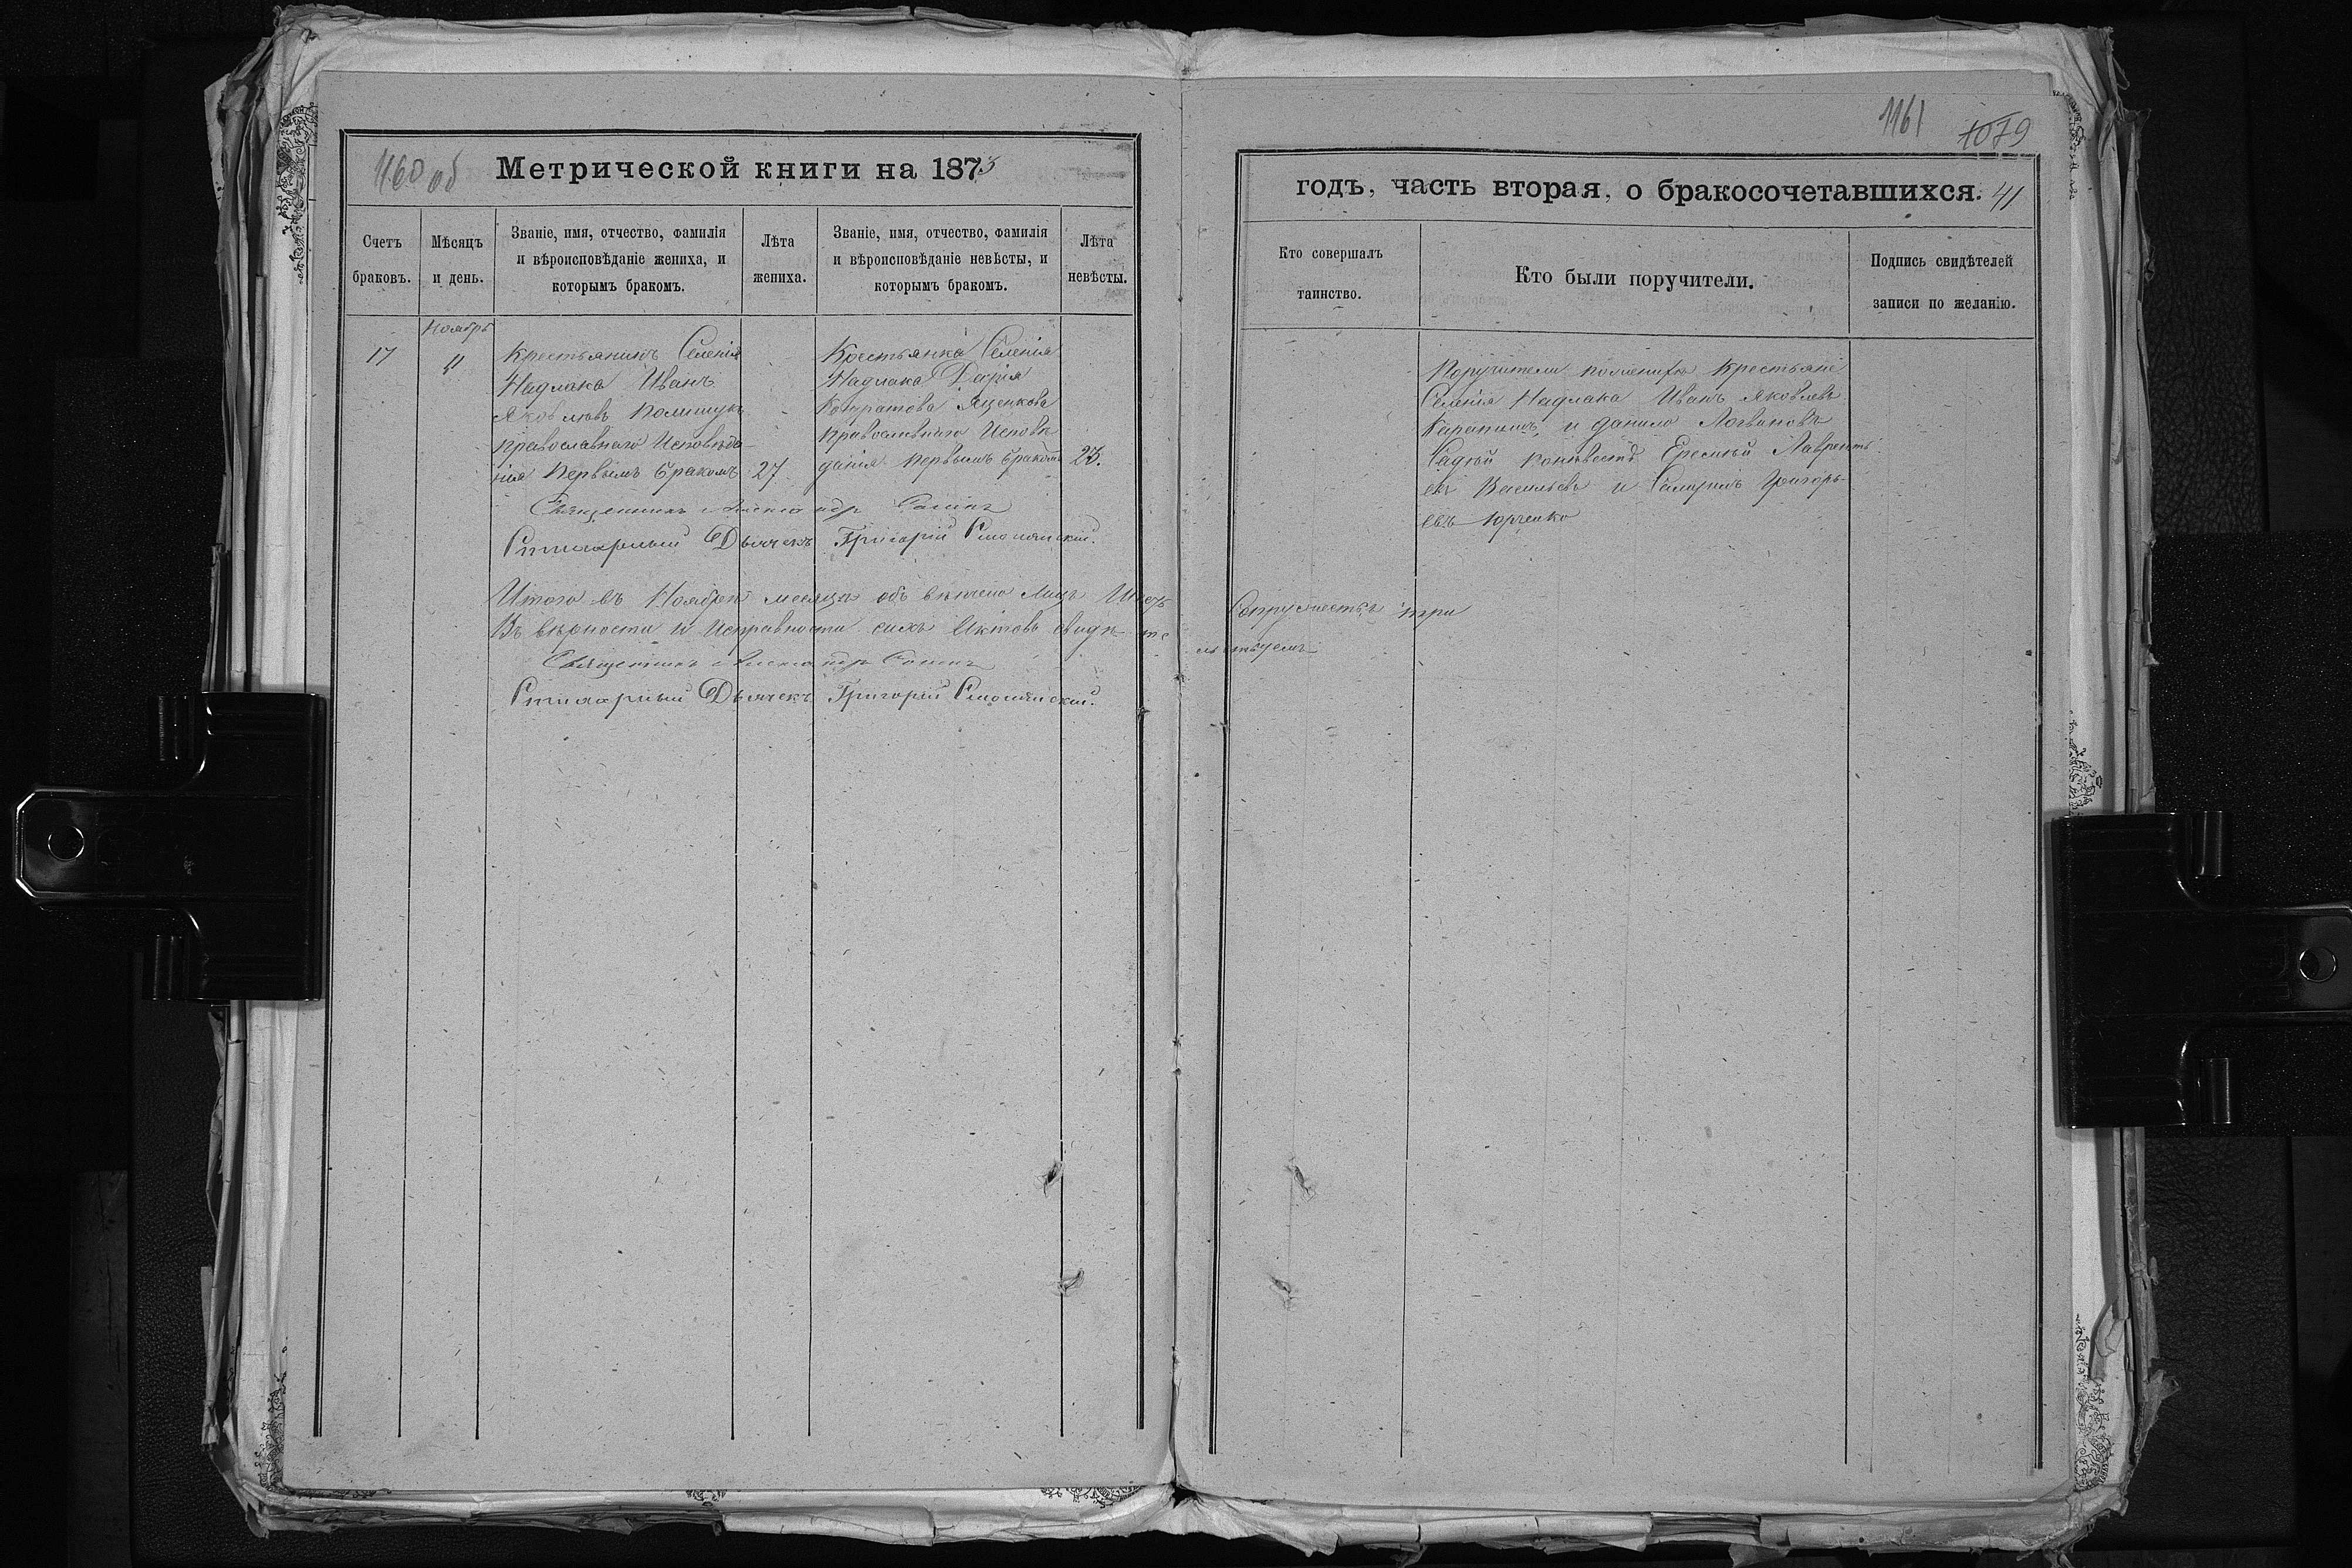 1160 об
Метрической книги на 1873
Счетъ браковъ.
Мѣсяцъ и день.
Званіе, имя, отчество, фамилія
и вѣроисповѣданіе жениха, и
которымъ бракомъ.
Лѣта жениха.
Званіе, имя, отчество, фамилія
и вѣроисповѣданіе невѣсты, и
которымъ бракомъ.
Лѣта невѣсты.
Ноябрь
17
Крестьянинъ Селенія
Надлака Иванъ
Яковлевъ Полищукъ
православнаго Исповѣда
нія Первымъ бракомъ
27
Крестьянка Селенія
Надлака Дарія
Яценкова
православнаго Исповѣ
данія первымъ бракомъ
23.
Священникъ Александръ
Стихарный Дьячекъ Григорій
Итого въ Ноябрѣ месяцѣ Лицъ
Въ вѣрности и Исправности сихъ Актовъ свидѣ те
Священникъ Александръ
Стихарный Дьячекъ Григорій
1161
1079
годъ, часть вторая, о бракосочетавшихся. 41
Кто совершалъ
таинство.
Кто были поручители.
Подпись свидѣтелей
записи по желанію.
Поручители по женихѣ крестьяне
Селенія Надлака Иванъ Яковлевъ
и Данило Логвиновъ
по невестѣ Лавренть
евъ Васильевъ и Григорь
евъ Юрченко
Супружествъ три
льствуемъ